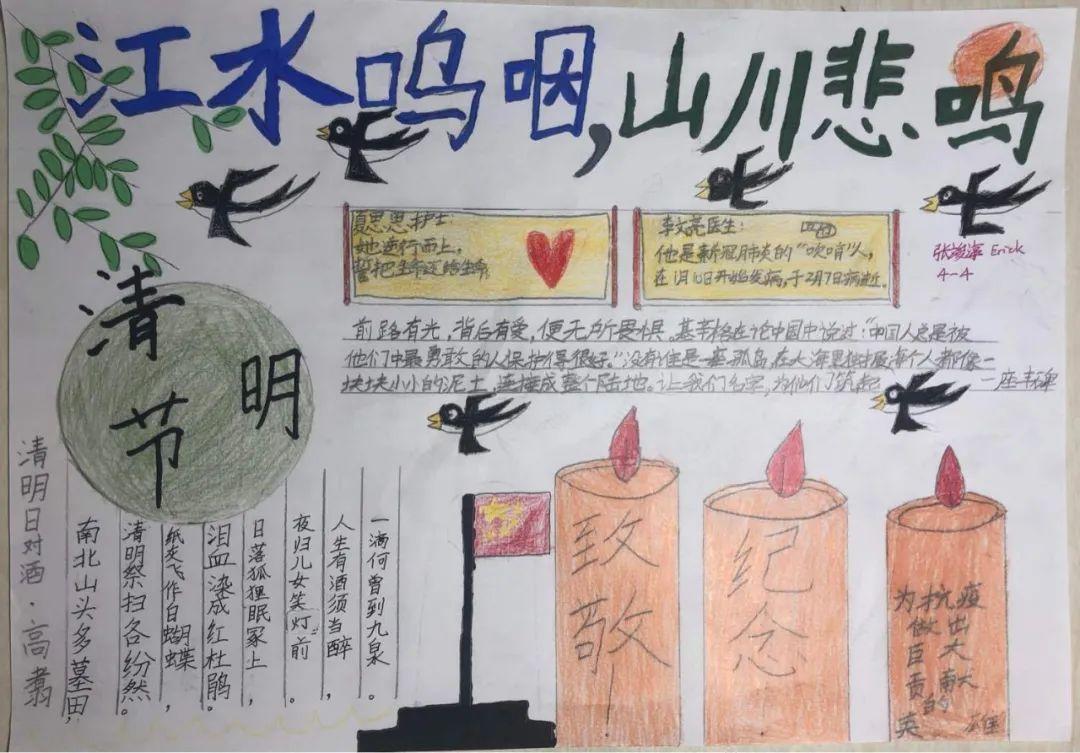 江水呜咽,山川悲鸣
夏思思护士:
她逆行而上,
誓把生命还给生命。
李文亮医生:
他是新冠肺炎的“吹哨”人,
在1月10日开始发病,于2月7日病逝。
Erick
4-4
前路有光,背后有爱,便无所畏惧。基辛格在论中国中说过:“中国人总是被
他们中最勇敢的人保护得很好。”没有谁是一座孤岛,在大海里独踞,每个人都像一
块块小小的泥土,连接成整个陆地。让我们,为他们筑起一座丰碑
清明节
清明日对酒·高翥
南北山头多墓田,
清明祭扫各纷然。
纸灰飞作白蝴蝶,
泪血染成红杜鹃。
日落狐狸眠冢上,
夜归儿女笑灯前。
人生有酒须当醉,
一滴何曾到九泉。
致敬!
纪念
为抗疫
做出
巨大
贡献
的
英雄